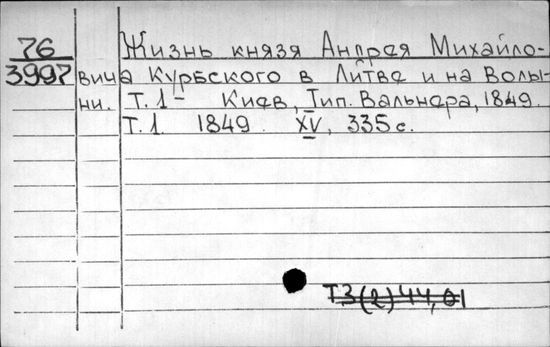 76
3997
Жизнь князя Андрея Михайло-
вича Курбского в Литве и на Волы-
ни. Т. 1 – Киев, Тип. Вальнера, 1849.
Т. 1. 1849. XV, 335 с.
Т3(2)44,01